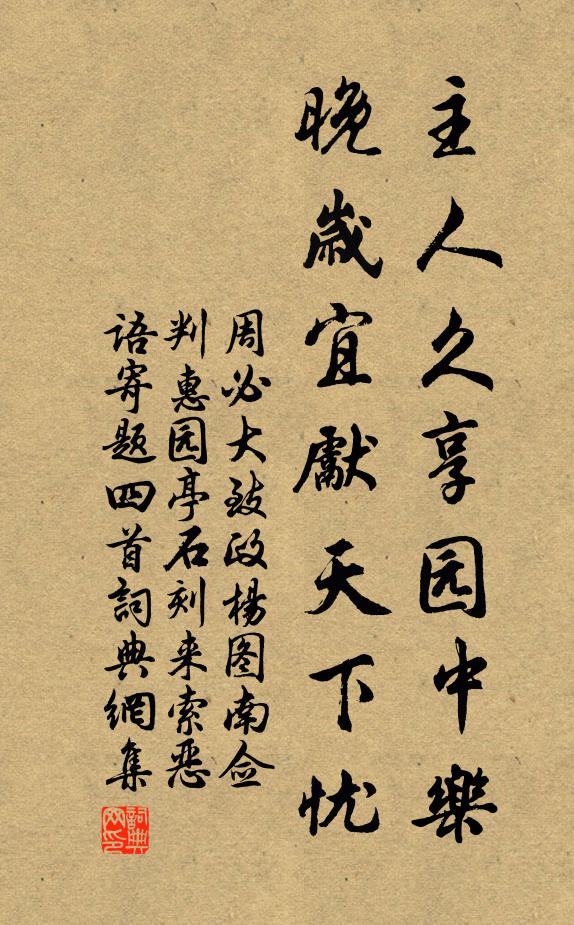 主人久享园中樂
晚歳宜獻天下忧
周必大致政楊图南佥
判惠园亭石刻来索恶
语寄题四首詞典網集
詞典网印